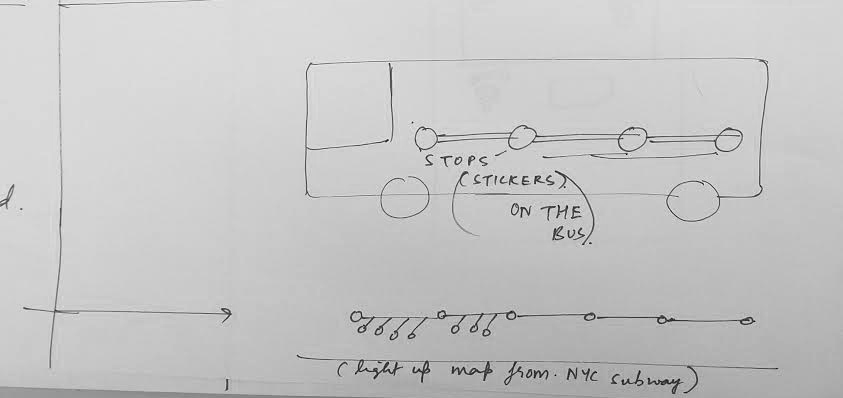 d.
STOPS
(STICKERS).
ON THE
BUS.
(light up map from. NYC subway)